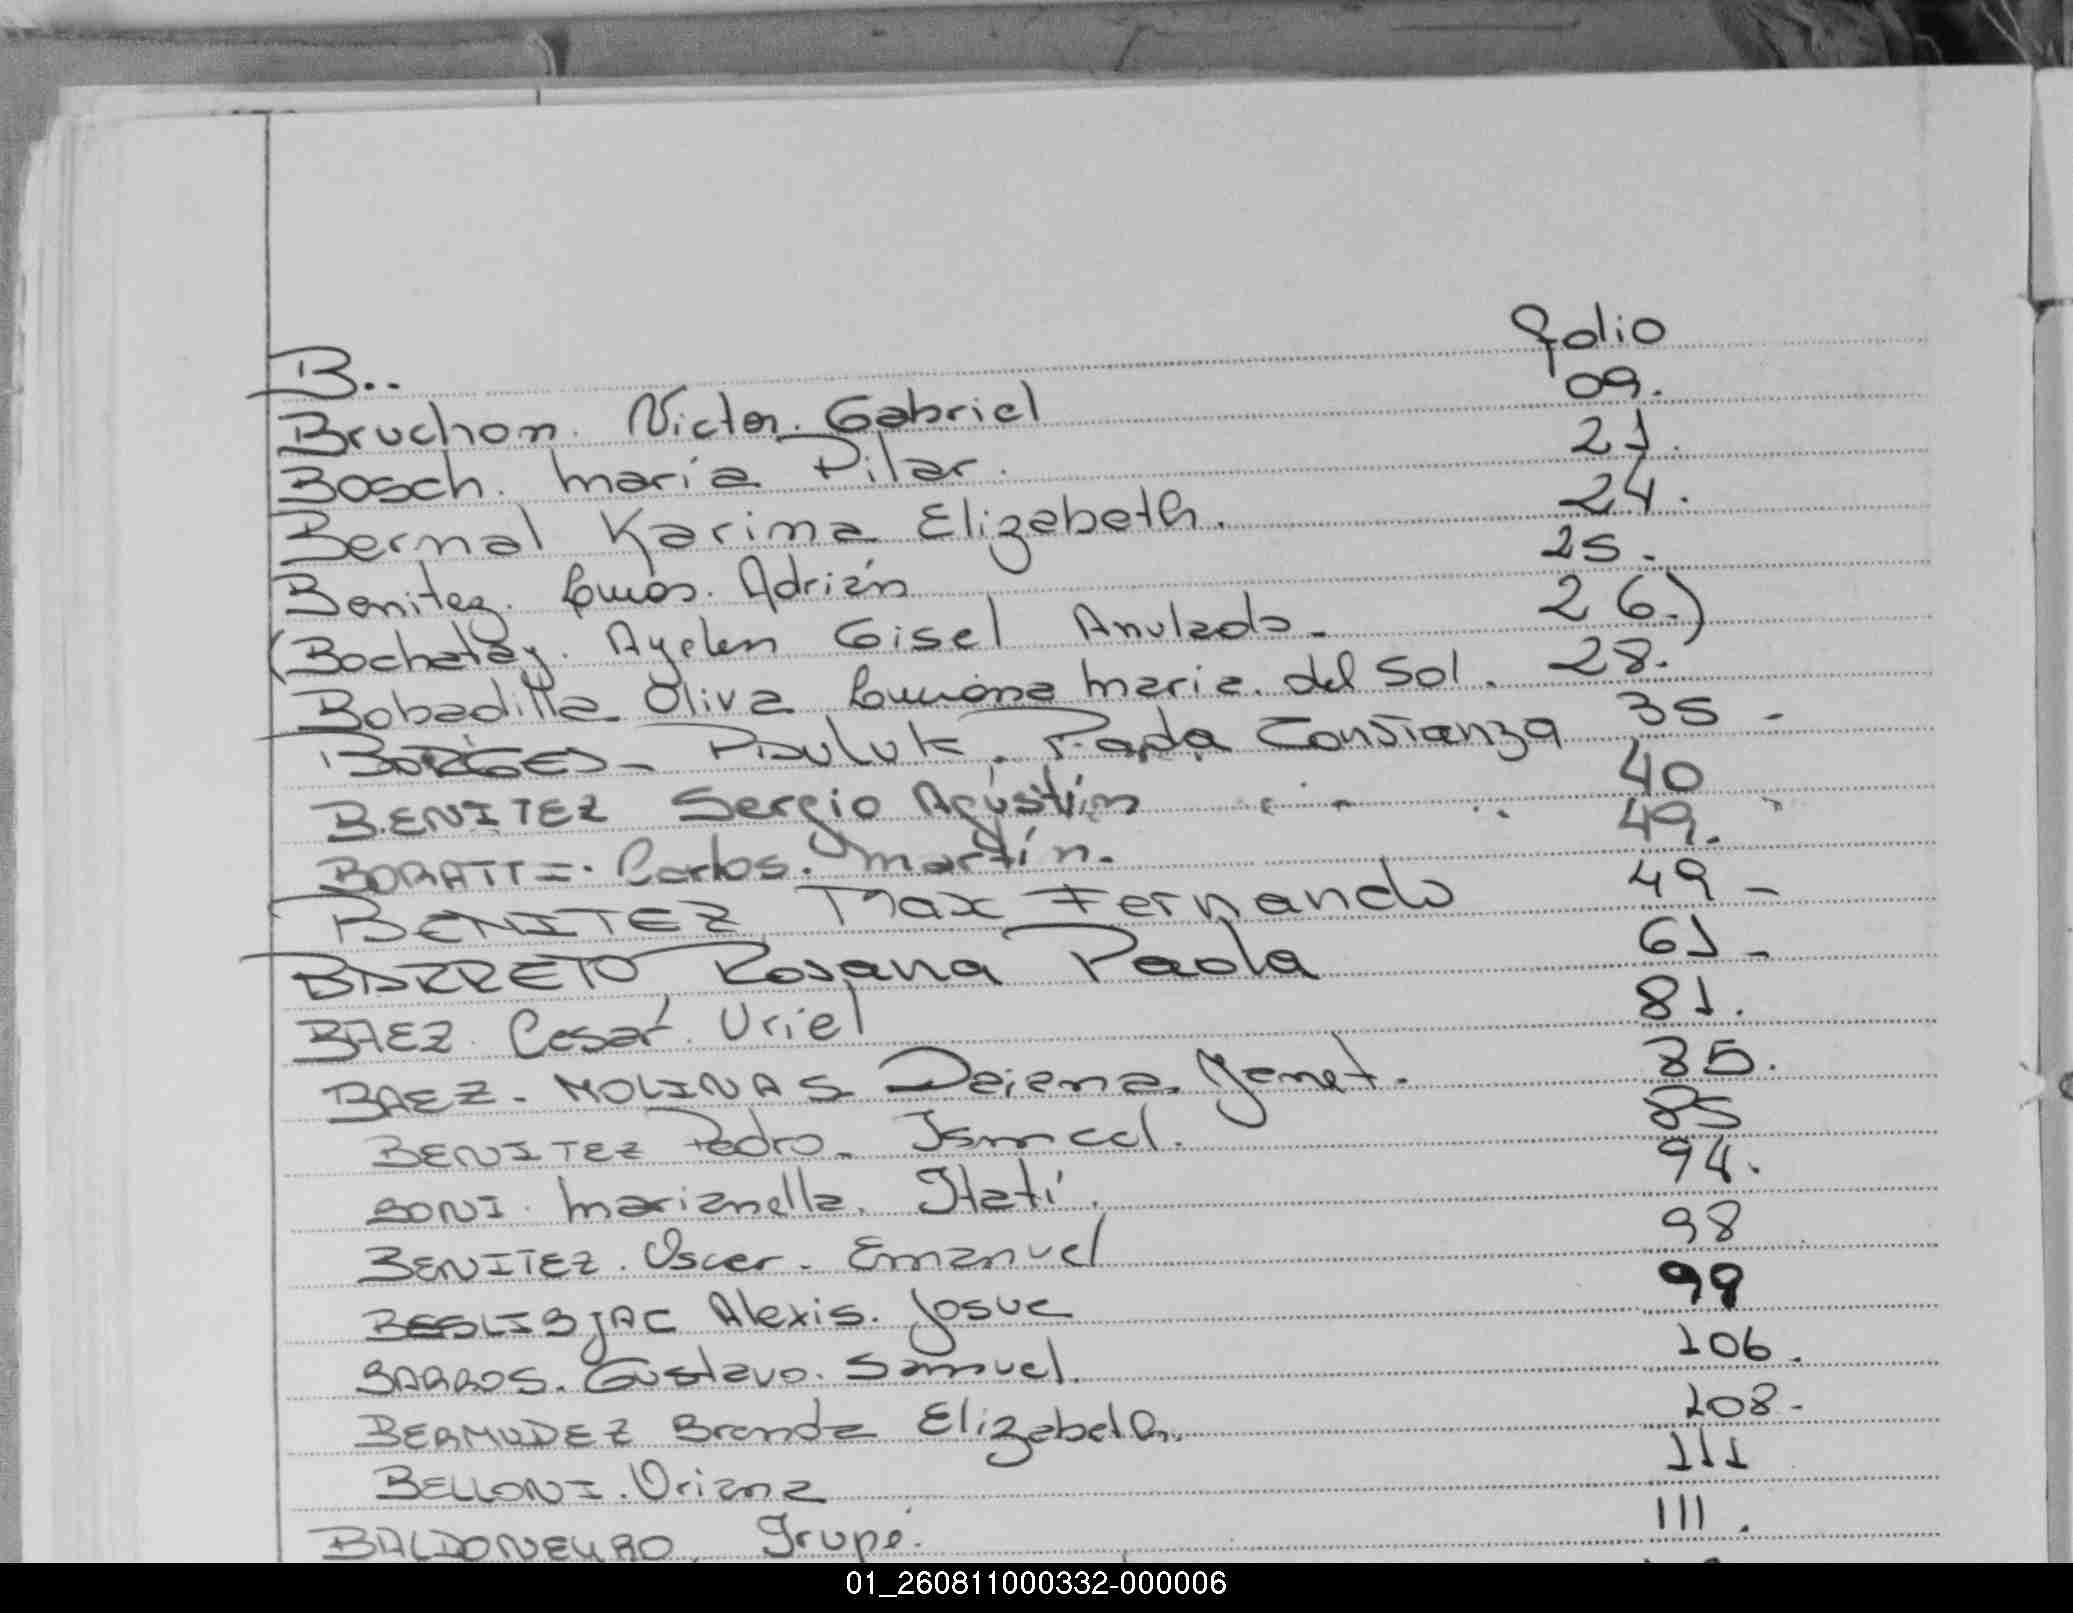 B..
folio
Bruchon. Victor. Gabriel 09.
Bosch. maria Pilar. 21.
Bernal Karina Elizabeth. 24.
Benitez. Adrián 25.
(Bochatay. Ayelen Gisel Anulado- 26.)
Bobadilla Oliva maria. del Sol. 28.
BORGES- Pauluk. Paola Constanza 35-
BENITEZ Sergio Agustin 40
BORATTI. Carlos. martín. 49.
BENITEZ Max Fernando 49-
BARRETO Rosana Paola 61-
BAEZ. Cesar. Uriel 81.
BAEZ- MOLINAS Daiana. Yanet. 85.
BENITEZ Pedro- Ismael. 85
BONI. marianella. Itatí. 94.
BENITEZ. Oscar. Emanuel 98
Alexis. Josue 99
BARROS. Gustavo. Samuel. 106.
BERMUDEZ Brenda Elizabeth. 108.
BELLONI. Oriana 111
111.
01_260811000332-000006